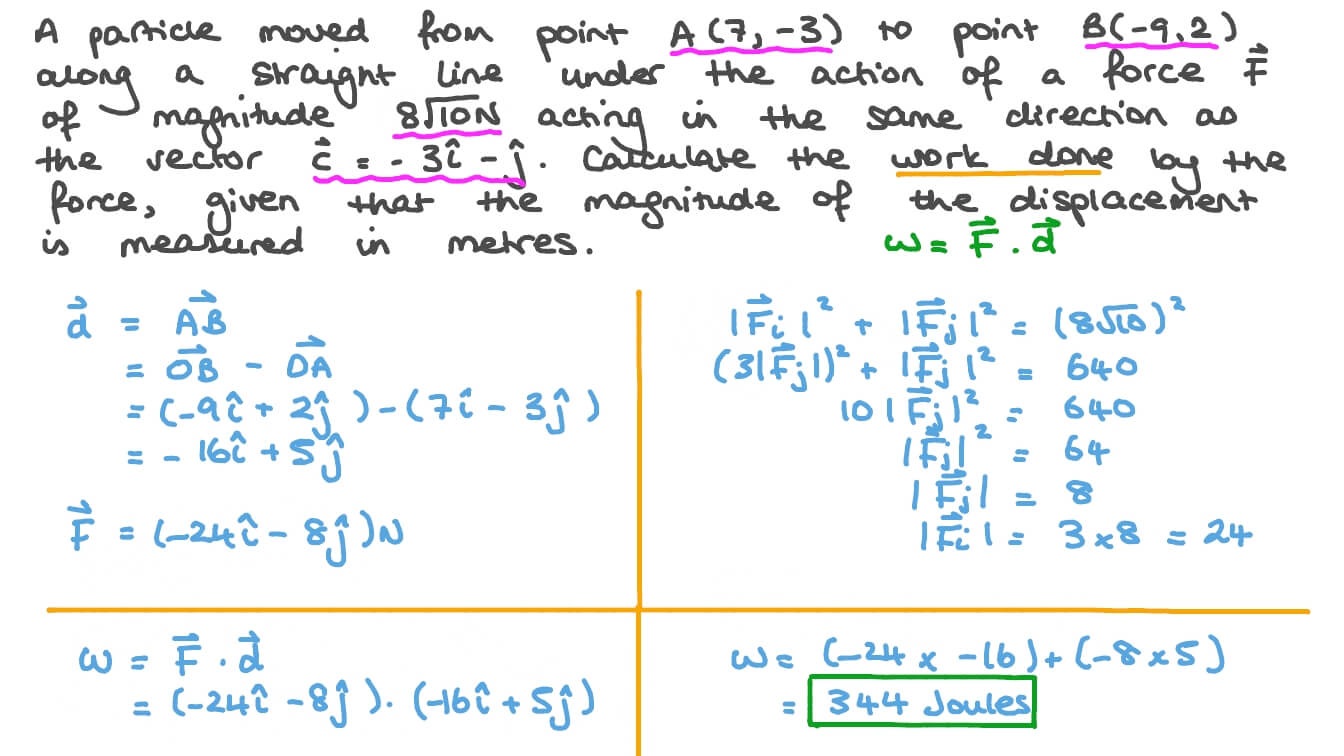 A particle moved from point A(7,-3) to point B(-9,2)
along a straight line under the action of a force F⃗
of magnitude 8√10N acting in the same direction as
the vector c⃗ = -3î - ĵ. Calculate the work done by the
force, given that the magnitude of the displacement
is measured in metres.
ω = F⃗ . d⃗
d⃗ = AB⃗
= OB⃗ - OA⃗
= (-9î + 2ĵ) - (7î - 3ĵ)
= -16î + 5ĵ
F⃗ = (-24î - 8ĵ)N
|F⃗i|² + |F⃗j|² = (8√10)²
(3|F⃗j|)² + |F⃗j|² = 640
10|F⃗j|² = 640
|F⃗j|² = 64
|F⃗j| = 8
|F⃗i| = 3×8 = 24
ω = F⃗ . d⃗
= (-24î - 8ĵ). (-16î + 5ĵ)
ω = (-24 × -16) + (-8×5)
= 344 Joules